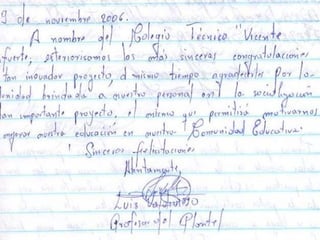 9 de noviembre 2006.
A nombre del Colegio Técnico "Vicente
fuerte, exteriorisamos las más sinceras congratulaciones
tan inovador proyecto, al mismo tiempo agradecerles por la
unidad brindada a nuestro personal en la socialización
tan importante proyecto, el mismo que permitirá motivarnos
mejorar nuestra educación en nuestra Comunidad Educativa.
Sinceras felicitaciones.
Atentamente,
LUIS
Profesor del Plantel